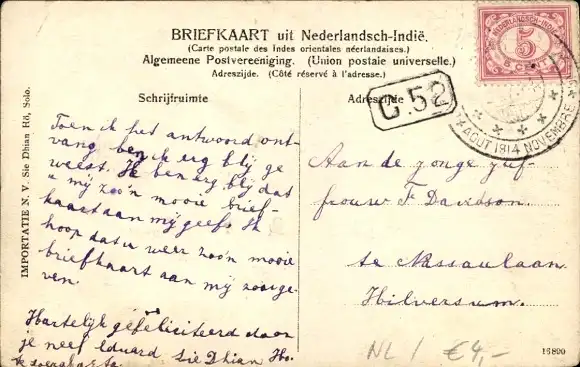 BRIEFKAART uit Nederlandsch-Indië.
(Carte postale des Indes orientales néerlandaises.)
Algemeene Postvereeniging. (Union postale universelle.)
Adreszijde. (Côté réservé à l'adresse.)
Schrijfruimte
Adreszijde
NEDERLANDSCH-INDIË
5
5 CENT
G.52
14 AOUT 1914 NOVEMBRE
IMPORTATIE N. V. Sie Dhian Hô, Solo.
Toen ik het antwoord ont-
vang ben ik erg blij ge
weest. Ik ben erg blij dat
u mij zoo'n mooie brief-
kaart aan mij geeft. Ik
hoop dat u weer zoo'n mooie
briefkaart aan mij zou ge-
ven.
Hartelijk gefeliciteerd door
je neef Eduard Sie Dhian Ho.
Aan de jonge juf-
frouw F Davidson
te Nassaulaan
Hilversum.
NL / €4,-
15899